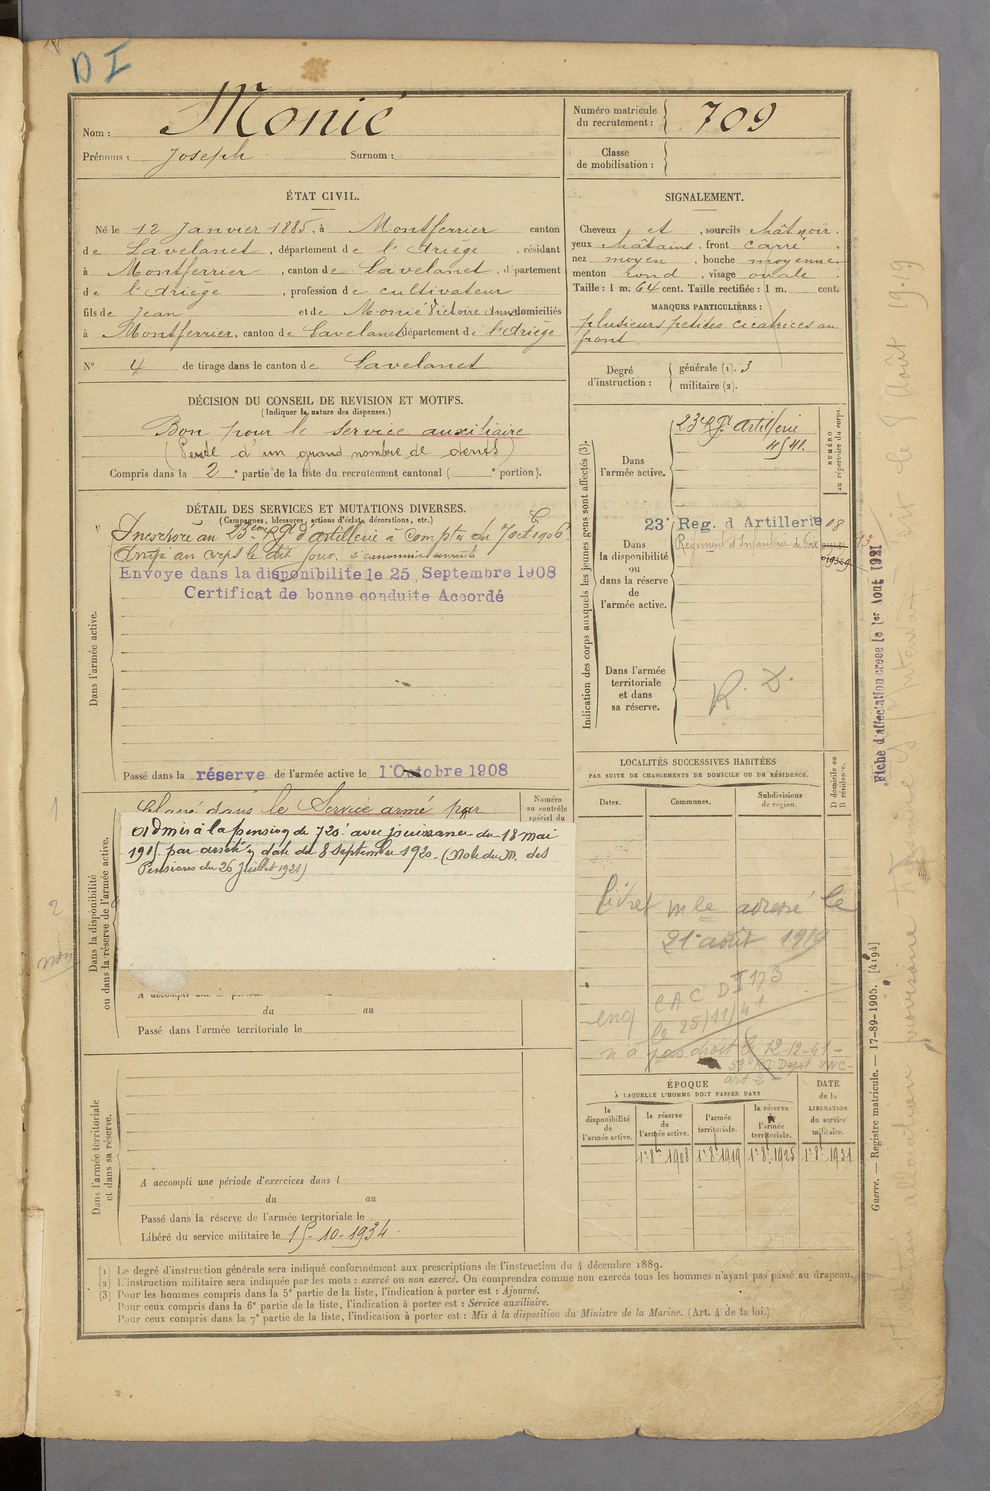 D I
Nom : Monié
Prénoms : Joseph Surnom :
Numéro matricule du recrutement : 709
Classe de mobilisation :
ÉTAT CIVIL.
Né le 12 Janvier 1885, à Montferrier canton
de Lavelanet, département de l'Ariège, résidant
à Montferrier, canton de Lavelanet, département
de l'Ariège, profession de cultivateur
fils de Jean et de Monié Victoire Anne domiciliés
à Montferrier, canton de Lavelanet département de l'Ariège
N° 4 de tirage dans le canton de Lavelanet
SIGNALEMENT.
Cheveux et, sourcils chât noir.
yeux châtains, front carré.
nez moyen, bouche moyenne
menton rond, visage ovale.
Taille : 1 m. 64 cent. Taille rectifiée : 1 m. cent.
MARQUES PARTICULIÈRES :
plusieurs petites cicatrices au
front
Degré d'instruction : générale (1). 3
militaire (2).
DÉCISION DU CONSEIL DE REVISION ET MOTIFS.
(Indiquer la nature des dispenses.)
Bon pour le service auxiliaire
(Perte d'un grand nombre de dents)
Compris dans la 2e partie de la liste du recrutement cantonal ( e portion).
DÉTAIL DES SERVICES ET MUTATIONS DIVERSES.
(Campagnes, blessures, actions d'éclat, décorations, etc.)
Dans l'armée active.
Incorporé au 23ème Rgt d'artillerie à compter du 7 Oct. 1906.
Arrivé au corps le dit jour.
Envoyé dans la disponibilite le 25 Septembre 1908
Certificat de bonne conduite Accordé
Passé dans la réserve de l'armée active le 1 Octobre 1908
Indication des corps auxquels les jeunes gens sont affectés (3).
NUMÉRO au répertoire du corps.
Dans l'armée active.
23e Rgt Artillerie
4541.
Dans la disponibilité ou dans la réserve de l'armée active.
23e Reg. d Artillerie 08
Régiment d'Infanterie de Foix
Dans l'armée territoriale et dans sa réserve.
R. D.
Fiche d'affectation créée le 1er Aout 1921
Dans la disponibilité ou dans la réserve de l'armée active.
Classé dans le Service armé par
Numéro au contrôle spécial du
Admis à la pension de 720f avec jouissance du 18 mai
1915 par arrêté en date du 8 septembre 1920. (Note du M. des
Pensions du 26 juillet 1921)
A accompli une
du au
Passé dans l'armée territoriale le
LOCALITÉS SUCCESSIVES HABITÉES
PAR SUITE DE CHANGEMENTS DE DOMICILE OU DE RÉSIDENCE.
Dates. Communes. Subdivisions de région. D domicile ou R résidence.
Livret mle adressé le
21 août 1919
CAC DI 173
le 25/11/41
n'a pas droit 12-12-41
ÉPOQUE
À LAQUELLE L'HOMME DOIT PASSER DANS
DATE de la LIBÉRATION du service militaire.
la disponibilité de l'armée active. la réserve de l'armée active. l'armée territoriale. la réserve de l'armée territoriale.
1er 8bre 1908 1er 8bre 1919 1er 8bre 1925 1er 8bre 1931
Dans l'armée territoriale et dans sa réserve.
A accompli une période d'exercices dans l
du au
Passé dans la réserve de l'armée territoriale le
Libéré du service militaire le 15-10-1934.
Guerre. — Registre matricule. — 17-89-1905. [4194]
(1) Le degré d'instruction générale sera indiqué conformément aux prescriptions de l'instruction du 4 décembre 1889.
(2) L'instruction militaire sera indiquée par les mots : exercé ou non exercé. On comprendra comme non exercés tous les hommes n'ayant pas passé au drapeau.
(3) Pour les hommes compris dans la 5e partie de la liste, l'indication à porter est : Ajourné.
Pour ceux compris dans la 6e partie de la liste, l'indication à porter est : Service auxiliaire.
Pour ceux compris dans la 7e partie de la liste, l'indication à porter est : Mis à la disposition du Ministre de la Marine. (Art. 4 de la loi.)